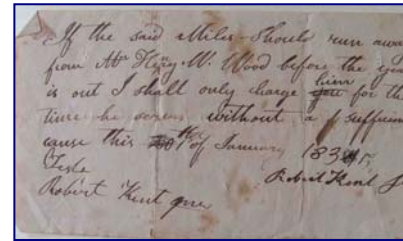 If the said Miles Should run away
from Mr Henry W. Wood before the year
is out I shall only charge him for the
time he serves without a sufficient
cause this of January 183
Teste
Robert Kent
Robert Kent